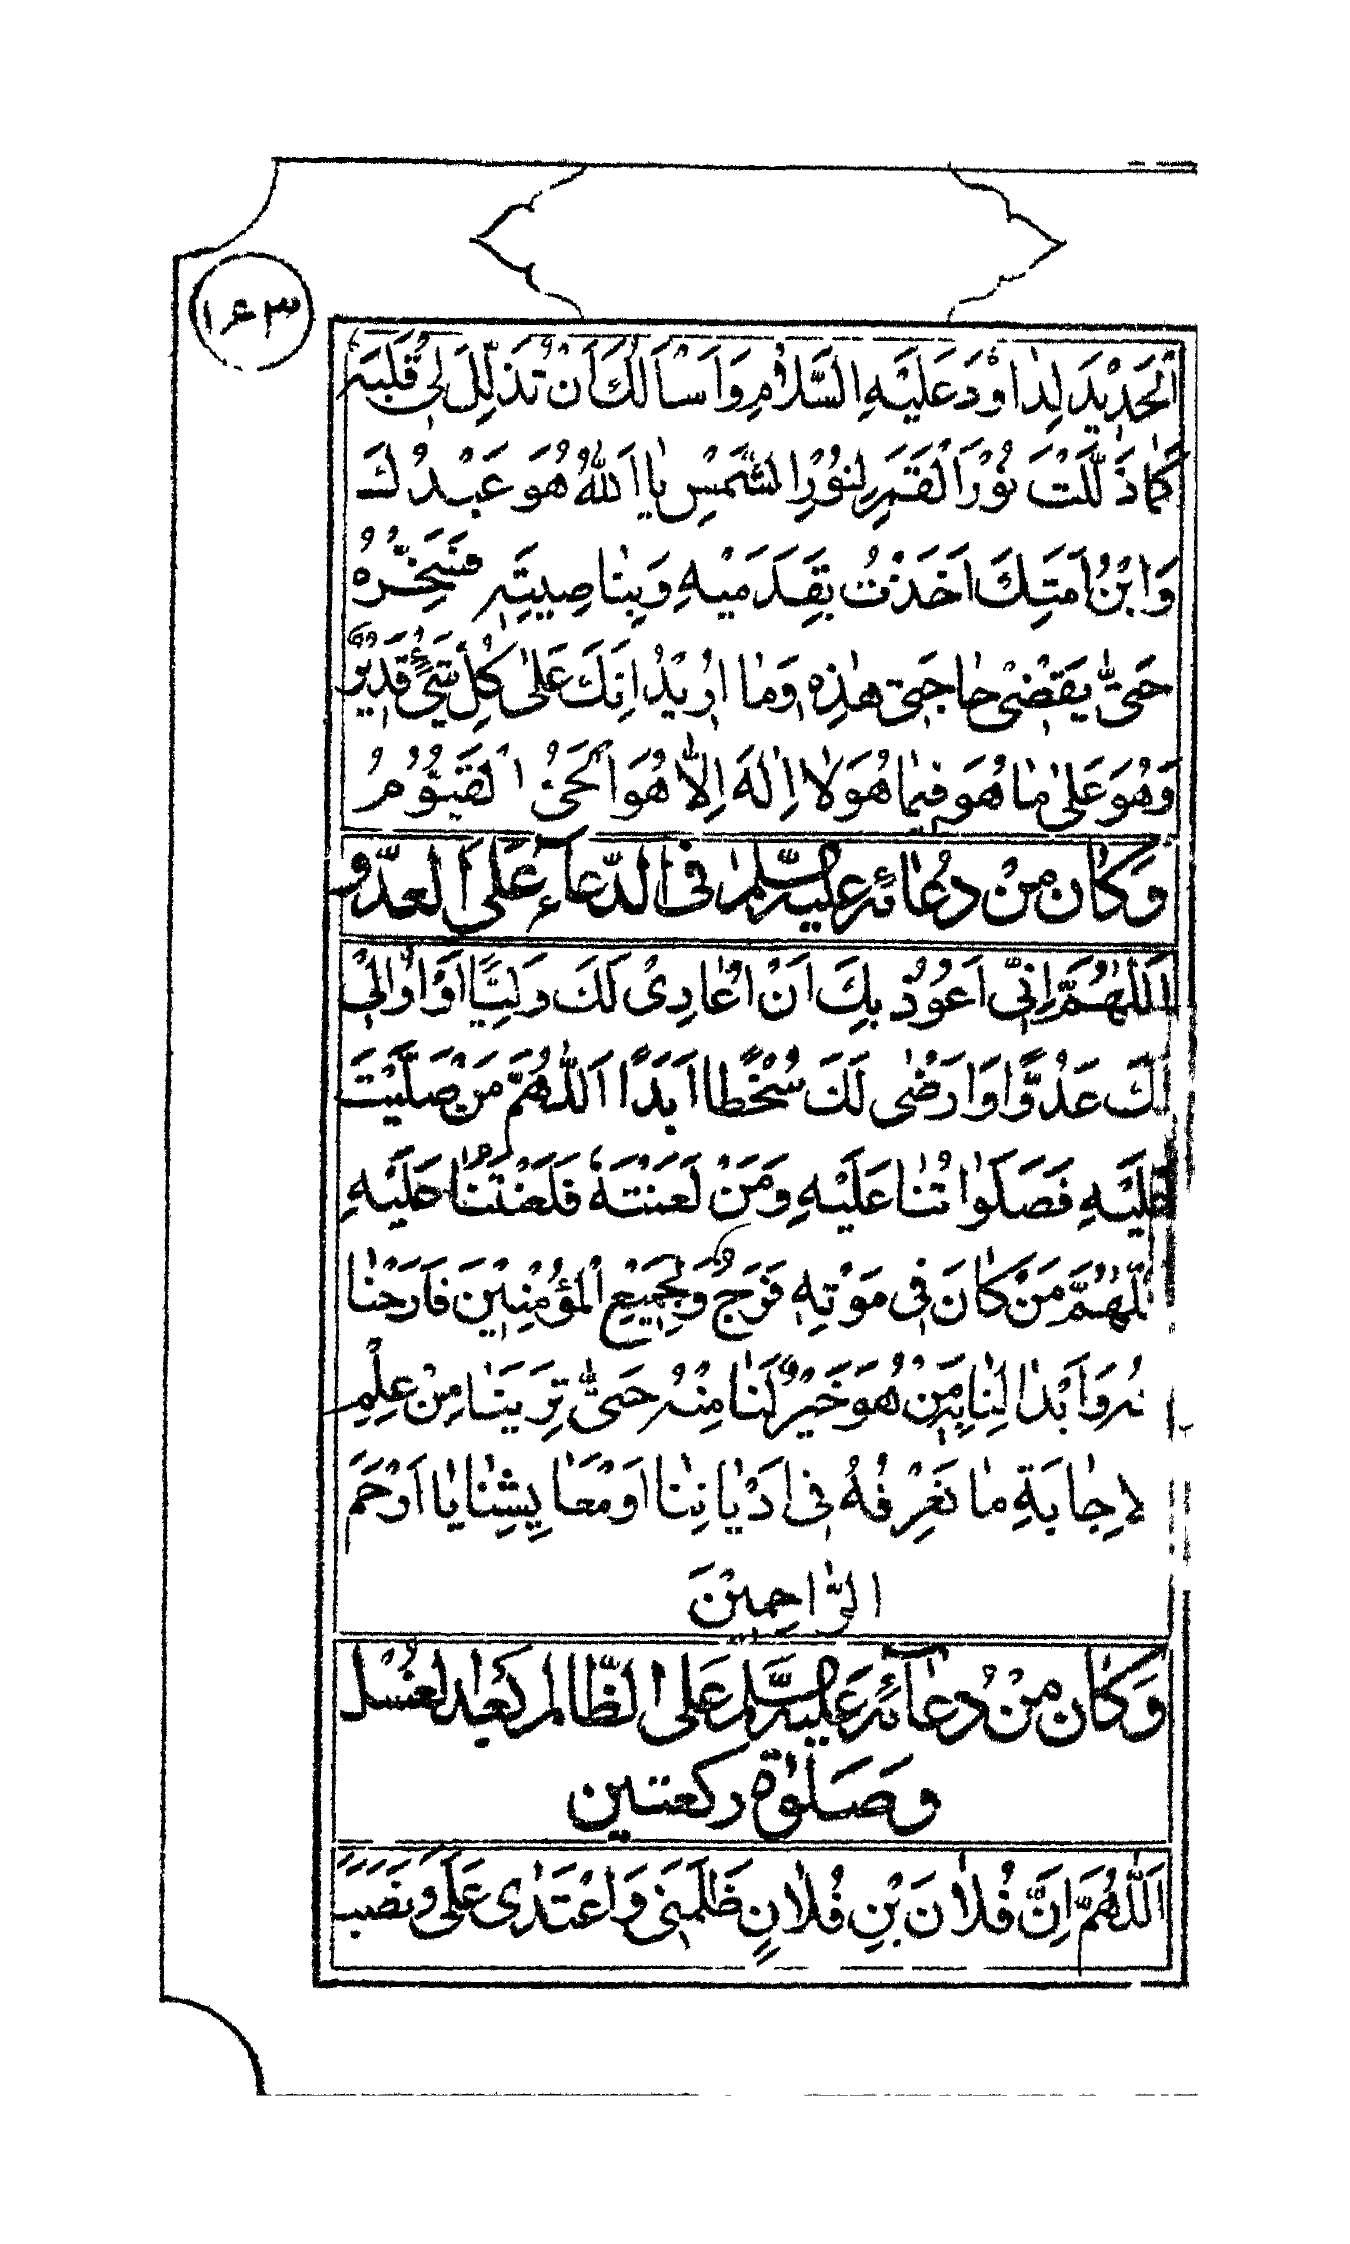 ۱۶۳
اَلْحَدِيْدَ لِدَاوُدَ عَلَيْهِ السَّلَامِ وَاَسْاَلُكَ اَنْ تُذَلِّلَ لِىْ قَلْبَهُ
كَمَا ذَلَّلْتَ نُوْرَ الْقَمَرِ لِنُوْرِ الشَّمْسِ يَا اَللهُ هُوَ عَبْدُكَ
وَابْنُ اَمَتِكَ اَخَذْتُ بِقَدَمَيْهِ وَبِنَاصِيَتِهٖ فَسَخِّرْهُ
حَتّٰى يَقْضِىَ حَاجَتِىْ هٰذِهٖ وَمَا اُرِيْدُ اِنَّكَ عَلٰى كُلِّ شَيْءٍ قَدِيْرٌ
وَهُوَ عَلٰى مَا هُوَ فِيْمَا هُوَ لَا اِلٰهَ اِلَّا هُوَ الْحَىُّ الْقَيُّوْمُ
وَكَانَ مِنْ دُعَائِهٖ عَلَيْهِ السَّلَامُ فِى الدُّعَآءِ عَلَى الْعَدُوِّ
اَللّٰهُمَّ اِنِّىْ اَعُوْذُ بِكَ اَنْ اُعَادِىَ لَكَ وَلِيًّا اَوْ اُوَالِىَ
لَكَ عَدُوًّا اَوْ اَرْضٰى لَكَ سُخْطًا اَبَدًا اَللّٰهُمَّ مَنْ صَلَّيْتَ
عَلَيْهِ فَصَلَوَاتُنَا عَلَيْهِ وَمَنْ لَعَنْتَهُ فَلَعْنَتُنَا عَلَيْهِ
اَللّٰهُمَّ مَنْ كَانَ فِى مَوْتِهٖ فَرَجٌ وَلِجَمِيْعِ الْمُؤْمِنِيْنَ فَاَرِحْنَا
مِنْهُ وَاَبْدِلْنَا بِهٖ مَنْ هُوَ خَيْرٌ لَنَا مِنْهُ حَتّٰى تُرِيَنَا مِنْ عِلْمِ
الْاِجَابَةِ مَا نَعْرِفُهُ فِى اَدْيَانِنَا وَمَعَايِشِنَا يَا اَرْحَمَ
الرَّاحِمِيْنَ
وَكَانَ مِنْ دُعَائِهٖ عَلَيْهِ السَّلَامُ عَلَى الظَّالِمِ بَعْدَ الْغُسْلِ
وَصَلٰوةِ رَكْعَتَيْنِ
اَللّٰهُمَّ اِنَّ فُلَانَ بْنِ فُلَانٍ ظَلَمَنِىْ وَاعْتَدٰى عَلَىَّ وَنَصَبَ